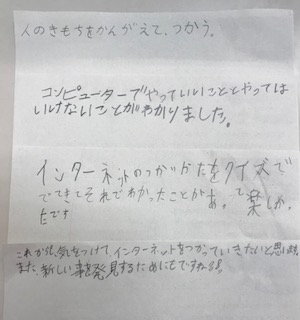 人のきもちをかんがえて、つかう。
コンピューターでやっていいこととやっては
いけないことがわかりました。
インターネットのつかいかたをクイズで
できてそれでわかったことがあって楽しか
たです
これから気をつけて、インターネットをつかっていきたいと思います。
また、新しい事を発見するためにも